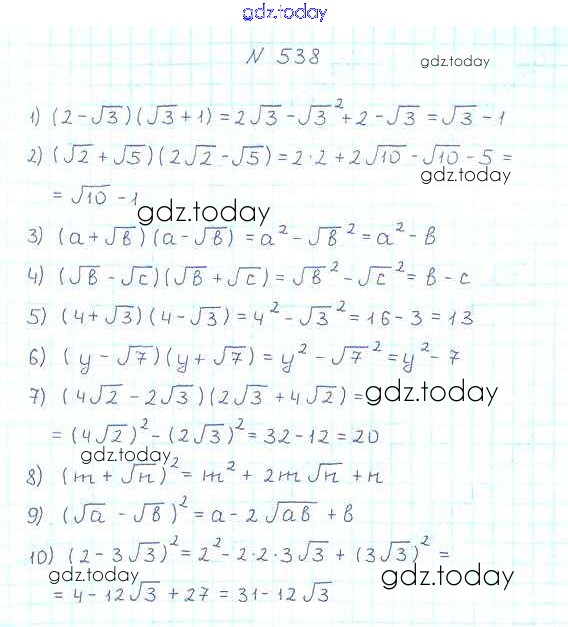 gdz.today
N 538
gdz.today
1) (2-√3)(√3+1) = 2√3 - √3² + 2 - √3 = √3 - 1
2) (√2 + √5)(2√2 - √5) = 2·2 + 2√10 - √10 - 5 =
gdz.today
= √10 - 1
gdz.today
3) (a + √b)(a - √b) = a² - √b² = a² - b
4) (√b - √c)(√b + √c) = √b² - √c² = b - c
5) (4 + √3)(4 - √3) = 4² - √3² = 16 - 3 = 13
6) (y - √7)(y + √7) = y² - √7² = y² - 7
7) (4√2 - 2√3)(2√3 + 4√2) =
gdz.today
= (4√2)² - (2√3)² = 32 - 12 = 20
gdz.today
8) (m + √n)² = m² + 2m√n + n
9) (√a - √b)² = a - 2√ab + b
10) (2 - 3√3)² = 2² - 2·2·3√3 + (3√3)² =
gdz.today
gdz.today
= 4 - 12√3 + 27 = 31 - 12√3